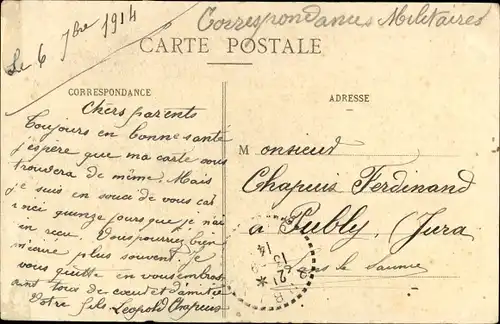 Correspondances Militaires
Le 6 7bre 1914
CARTE POSTALE
CORRESPONDANCE
ADRESSE
Chers parents
Toujours en bonne santé
j'espère que ma carte vous
trouvera de même. Mais
je suis en souci de vous car
voici quinze jours que je n'ai
rien recu. Vous pourriez bien
m'écrire plus souvent. Je
vous quitte en vous embras
sant tous de cœur et d'amitié
Votre fils Leopold Chapuis
Monsieur
Chapuis Ferdinand
à Publy, (Jura
Lons le Saunier